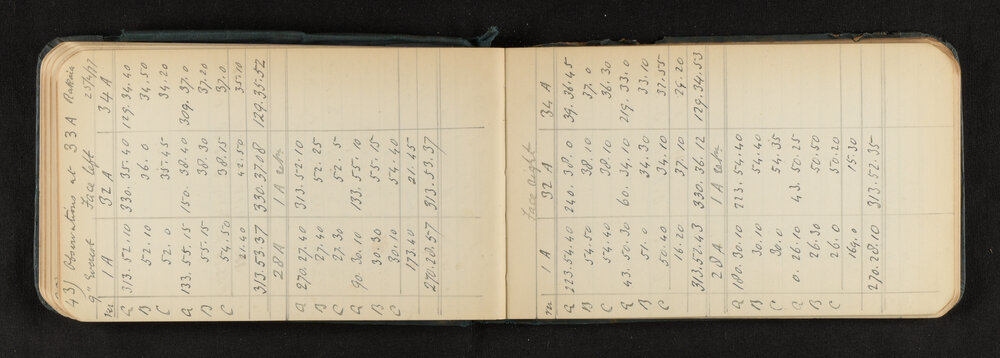 43) Observations at 33 A Rakaia
9" Everest Face left 25/4/77
m 1 A 32 A 34 A
A 313.52.10 330.35.40 129.34.40
B 52.10 36.0 34.50
C 52.0 35.45 34.20
A 133.55.15 150.38.40 309.37.0
B 55.15 38.30 37.20
C 54.50 38.15 37.0
21.40 42.50 35.10
313.53.37 330.37.08 129.35.52
28 A 1 A retn
A 270.27.40 313.52.10
B 27.40 52.25
C 27.30 52.5
A 90.30.10 133.55.10
B 30.30 55.15
C 30.10 54.40
173.40 21.45
270.28.57 313.53.37
Face right
m 1 A 32 A 34 A
A 223.54.40 240.38.0 39.36.45
B 54.50 38.10 37.0
C 54.40 38.10 36.30
A 43.50.30 60.34.10 219.33.0
B 51.0 34.30 33.10
C 50.40 34.10 32.55
16.20 37.10 29.20
313.52.43 330.36.12 129.34.53
28 A 1 A retn
A 180.30.10 223.54.40
B 30.10 54.40
C 30.0 54.35
A 0.26.10 43.50.25
B 26.30 50.50
C 26.0 50.20
169.0 15.30
270.28.10 313.52.35